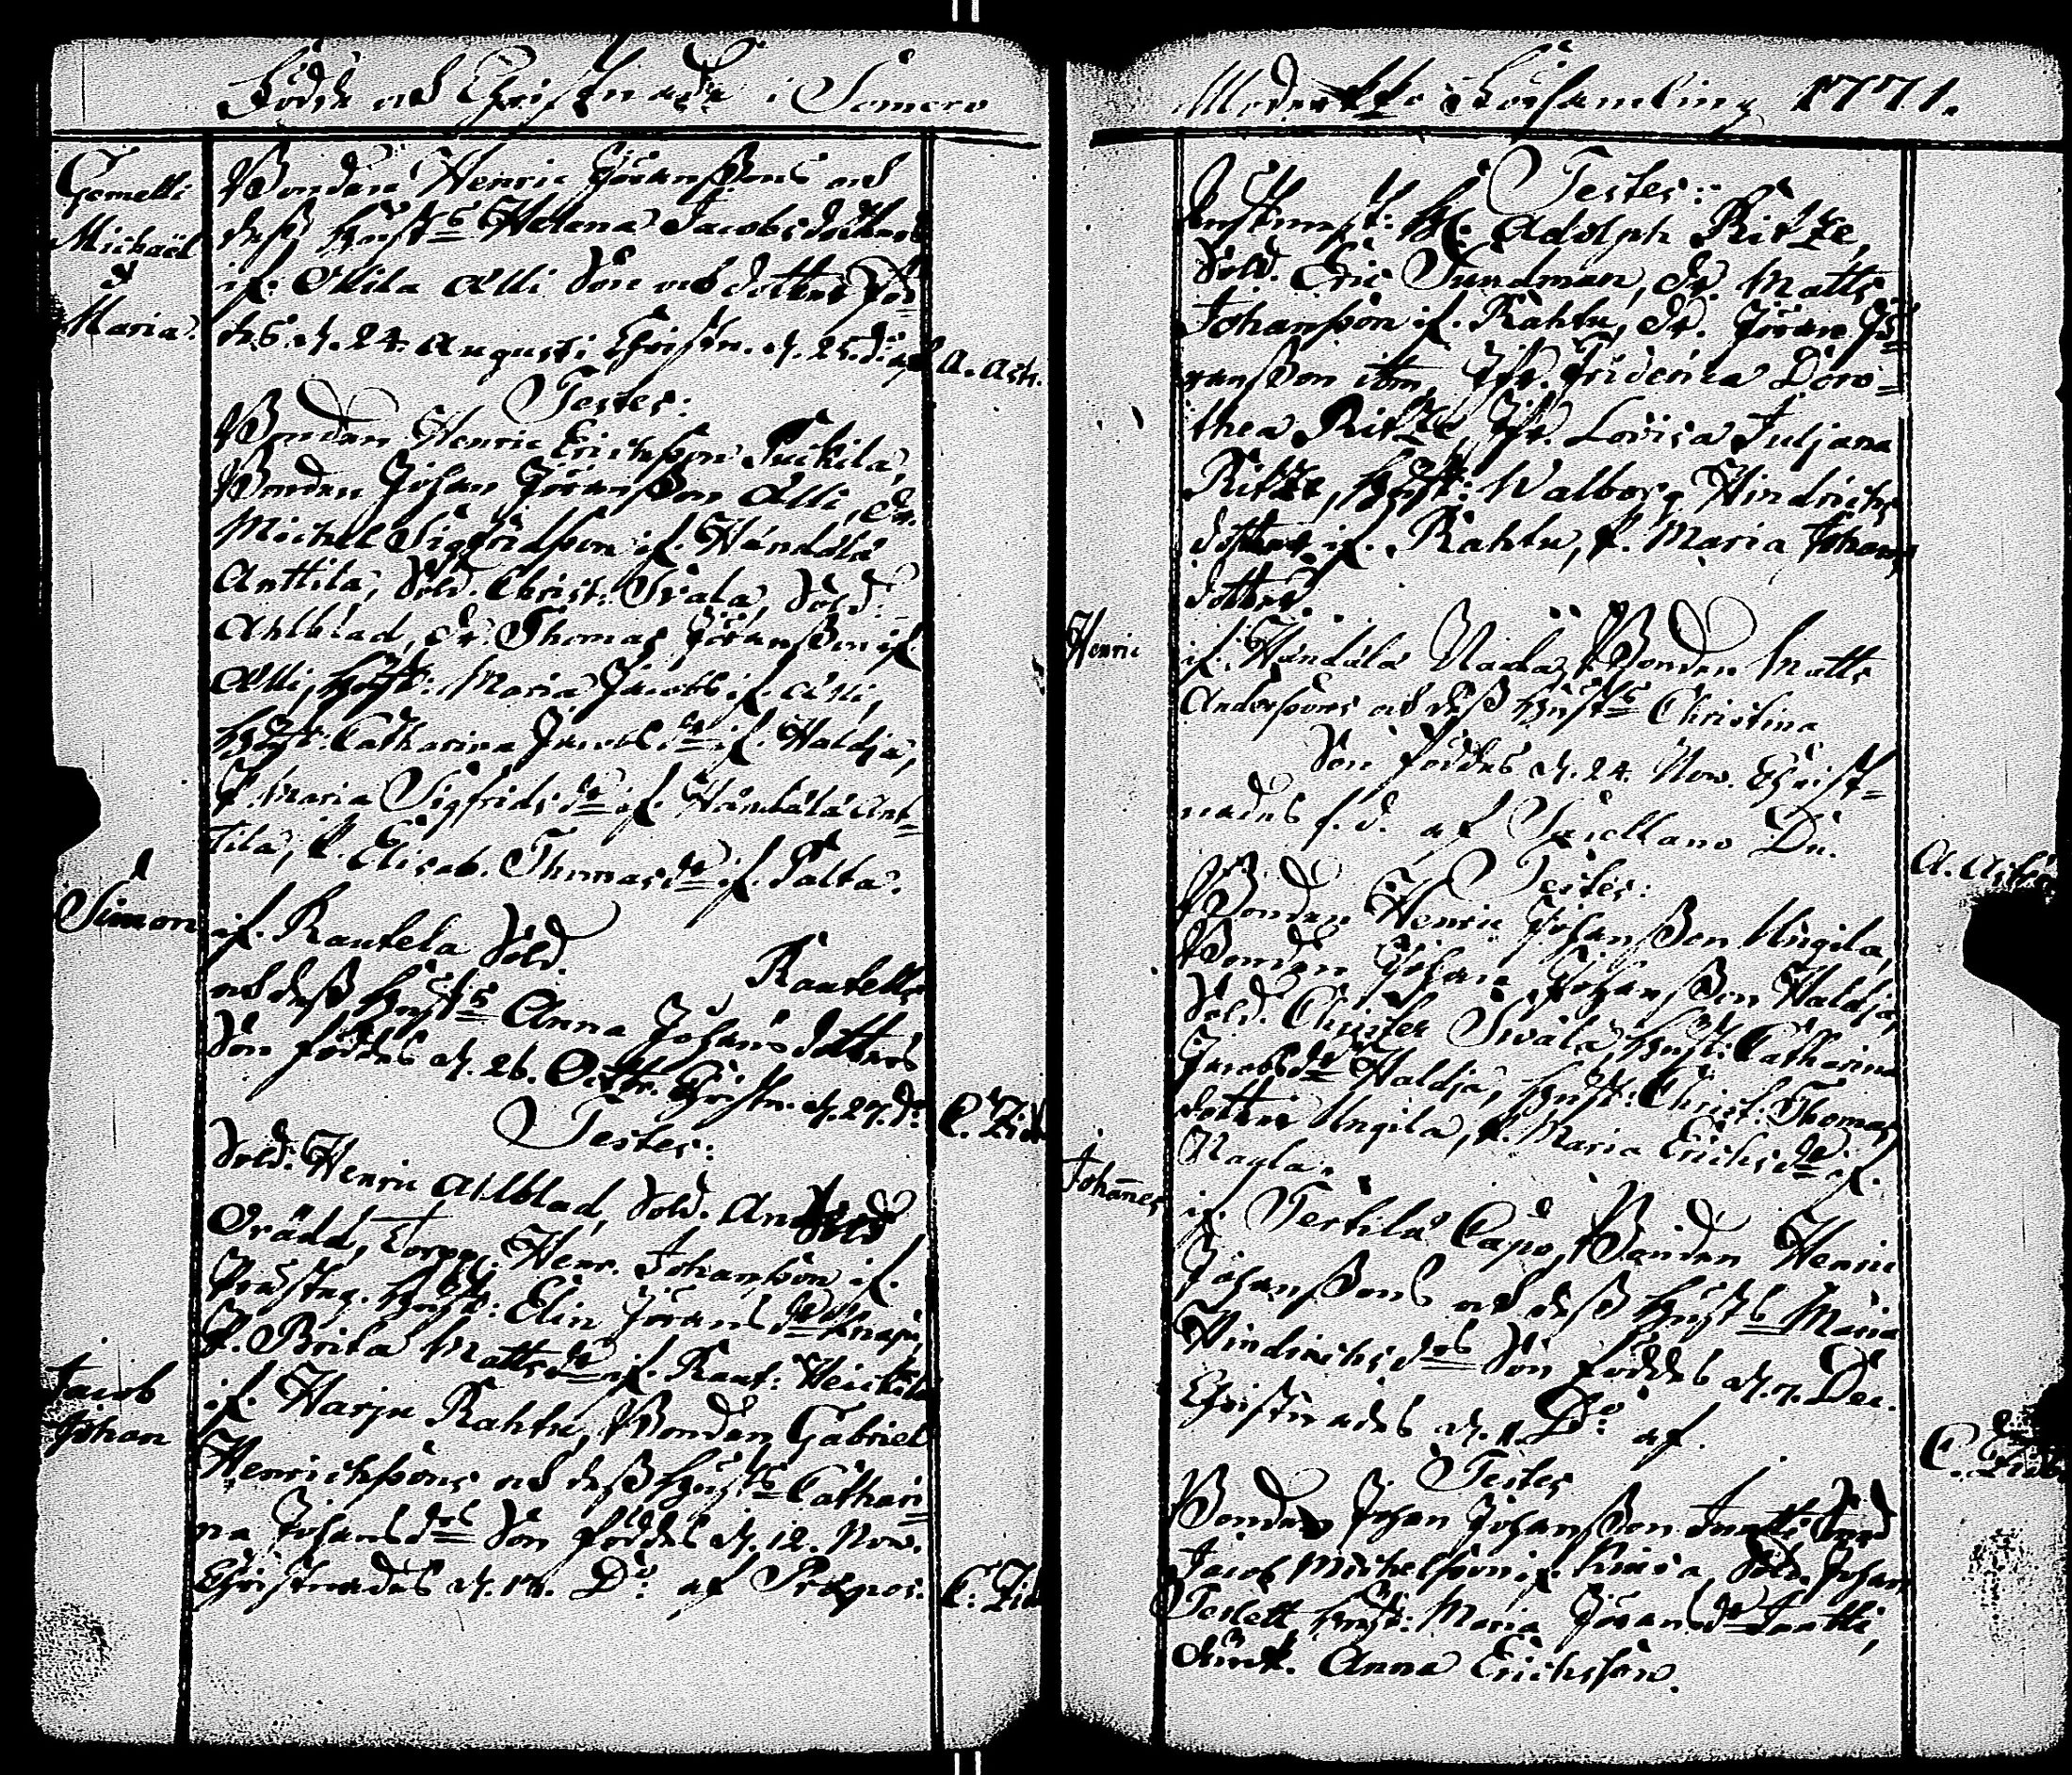 Födde och Christnade i Somero
Gemelli
Michaël
&
Maria.
Bonden Henric Göranssons och
dess hust:s Helena Jacobsdotters
if. Ollila Alli Son och dotter föd=
des d. 24. Augusti Christn. d. 25. d:o af
A. Ach.
Testes:
Bonden Henric Erichsson Kuckila,
Bonden Johan Göransson Alli, Dr.
Michel Sigfridsson if. Händälä
Anttila, Sold. Christ. Swala, Sold.
Ahlblad, Dr. Thomas Göransson if
Alli, hust: Maria Jacobs if. Alli,
hust: Catharina Jacobs dr if. Haldja,
P. Maria Sigfrids dr if. Händälä Ant=
tila, P. Elisab. Thomas dr if. Palta.
Simon
if. Rautela Sold.
Rautells
och dess hust:s Anna Johans dotters
Son föddes d. 26. Octbr. Christn. d. 27. d:o
C. Lid
Testes:
Sold. Henric Ahlblad, Sold. Anders
Orädd, Torpp. Henr. Johansson if.
Prästeg. hust: Elin Görans dr
P. Brita Matts dr if. Raut: Heickilä
Jacob
Johan
if. Harju Rahtu, Bonden Gabriel
Henrichssons och dess hust:s Cathari=
na Johans drs Son föddes d. 12. Nov.
Christnades d. 14. D:o af Præpos.
C. Lid
Moderkyrko Församling 1771.
Testes:
hr. Adolph Ritze,
Sold. Eric Sundman, Dr. Matts
Johansson if. Rahtu, Dr. Göran Gö=
ransson ibm, Jfr. Friderica Doro=
thea Ritze, Jfr. Lovisa Juljana
Ritze, hust: Walborg Hindrichs
dotter if. Rahtu, P. Maria Johans
dotter.
Henric
if. Händälä Nagla, Bonden Matts
Anderssons och dess hust:s Christina
Son föddes d. 24. Nov. Christ=
nades s. d. af Sacellano Dn.
A. Ach
Testes:
Bonden Henric Johansson Ungila,
Bonden Johan Johansson Haldja,
Sold. Christer Swala, hust: Catharina
Jacobs dr Haldja, hust: Christ: Thomas
dotter Ungila, P. Maria Erichs dr if.
Nagla.
Johannes
if. Tertilä Capo, Bonden Henric
Johanssons och dess hust:s Maria
Hindrichs drs Son föddes d. 7. Dec.
Christnades d. D:o af.
C. Lid
Testes
Bonden Johan Johansson
Jacob Michelsson if. Sold. Johan
hust: Maria Görans dr
Anna Erichsson.